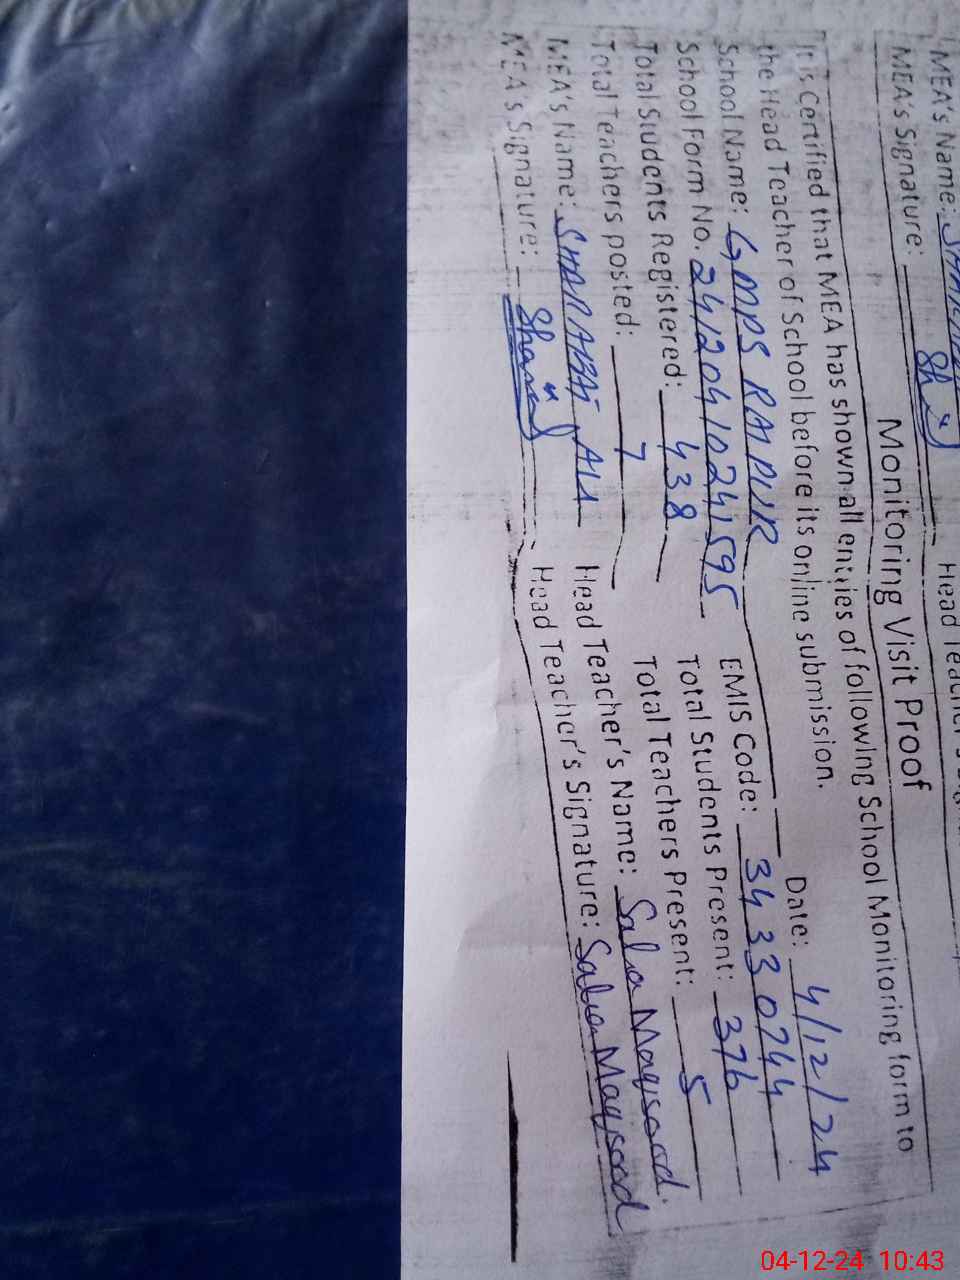 MEA's Name:
Head Teacher's
MEA's Signature:
Monitoring Visit Proof
It is Certified that MEA has shown all entries of following School Monitoring form to
the Head Teacher of School before its online submission.
Date: 4/12/24
School Name: GMPS RAIPUR
EMIS Code: 34330744
School Form No. 24120410241595
Total Students Present: 376
Total Students Registered: 438
Total Teachers Present: 5
Total Teachers posted: 7
Head Teacher's Name: Salia Maqsood
MEA's Name: SHARABAT ALI
Head Teacher's Signature: Salia Maqsood
MEA's Signature:
04-12-24 10:43